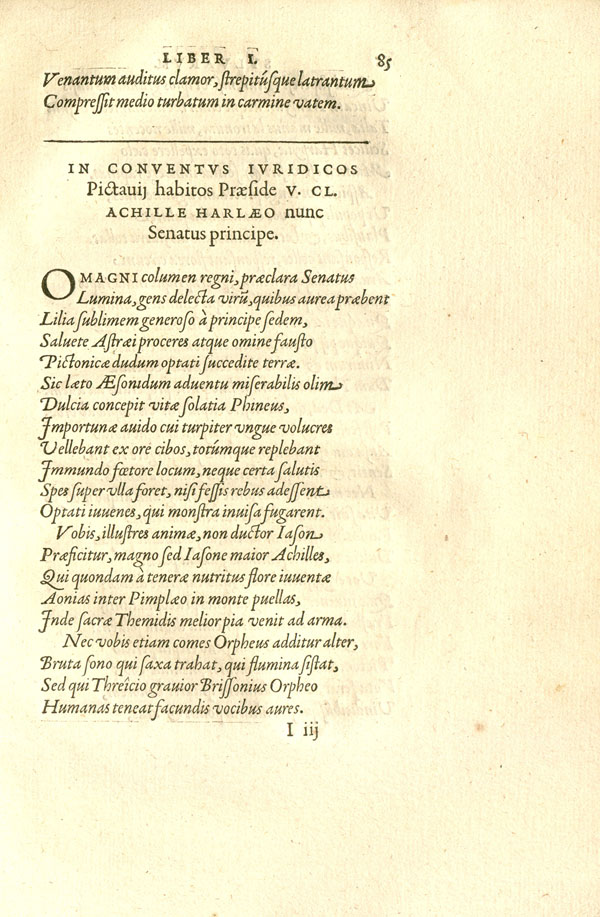 LIBER I. 85
Venantum auditus clamor, ſtrepitúſque latrantum
Compreſſit medio turbatum in carmine vatem.
IN CONVENTVS IVRIDICOS
Pictauij habitos Præſide V. CL.
ACHILLE HARLÆO nunc
Senatus principe.
O MAGNI columen regni, præclara Senatus
Lumina, gens delecta virũ, quibus aurea præbent
Lilia ſublimem generoſo à principe ſedem,
Saluete Aſtræi proceres atque omine fauſto
Pictonicæ dudum optati ſuccedite terræ.
Sic læto Æſonidum aduentu miſerabilis olim
Dulcia concepit vitæ ſolatia Phineus,
Importunæ auido cui turpiter vngue volucres
Vellebant ex ore cibos, totúmque replebant
Immundo fœtore locum, neque certa ſalutis
Spes ſuper vlla foret, niſi feſſis rebus adeſſent
Optati iuuenes, qui monſtra inuiſa fugarent.
Vobis, illuſtres animæ, non ductor Iaſon
Præficitur, magno ſed Iaſone maior Achilles,
Qui quondam à teneræ nutritus flore iuuentæ
Aonias inter Pimplæo in monte puellas,
Inde ſacræ Themidis melior pia venit ad arma.
Nec vobis etiam comes Orpheus additur alter,
Bruta ſono qui ſaxa trahat, qui flumina ſiſtat,
Sed qui Threîcio grauior Briſſonius Orpheo
Humanas teneat facundis vocibus aures.
I iij